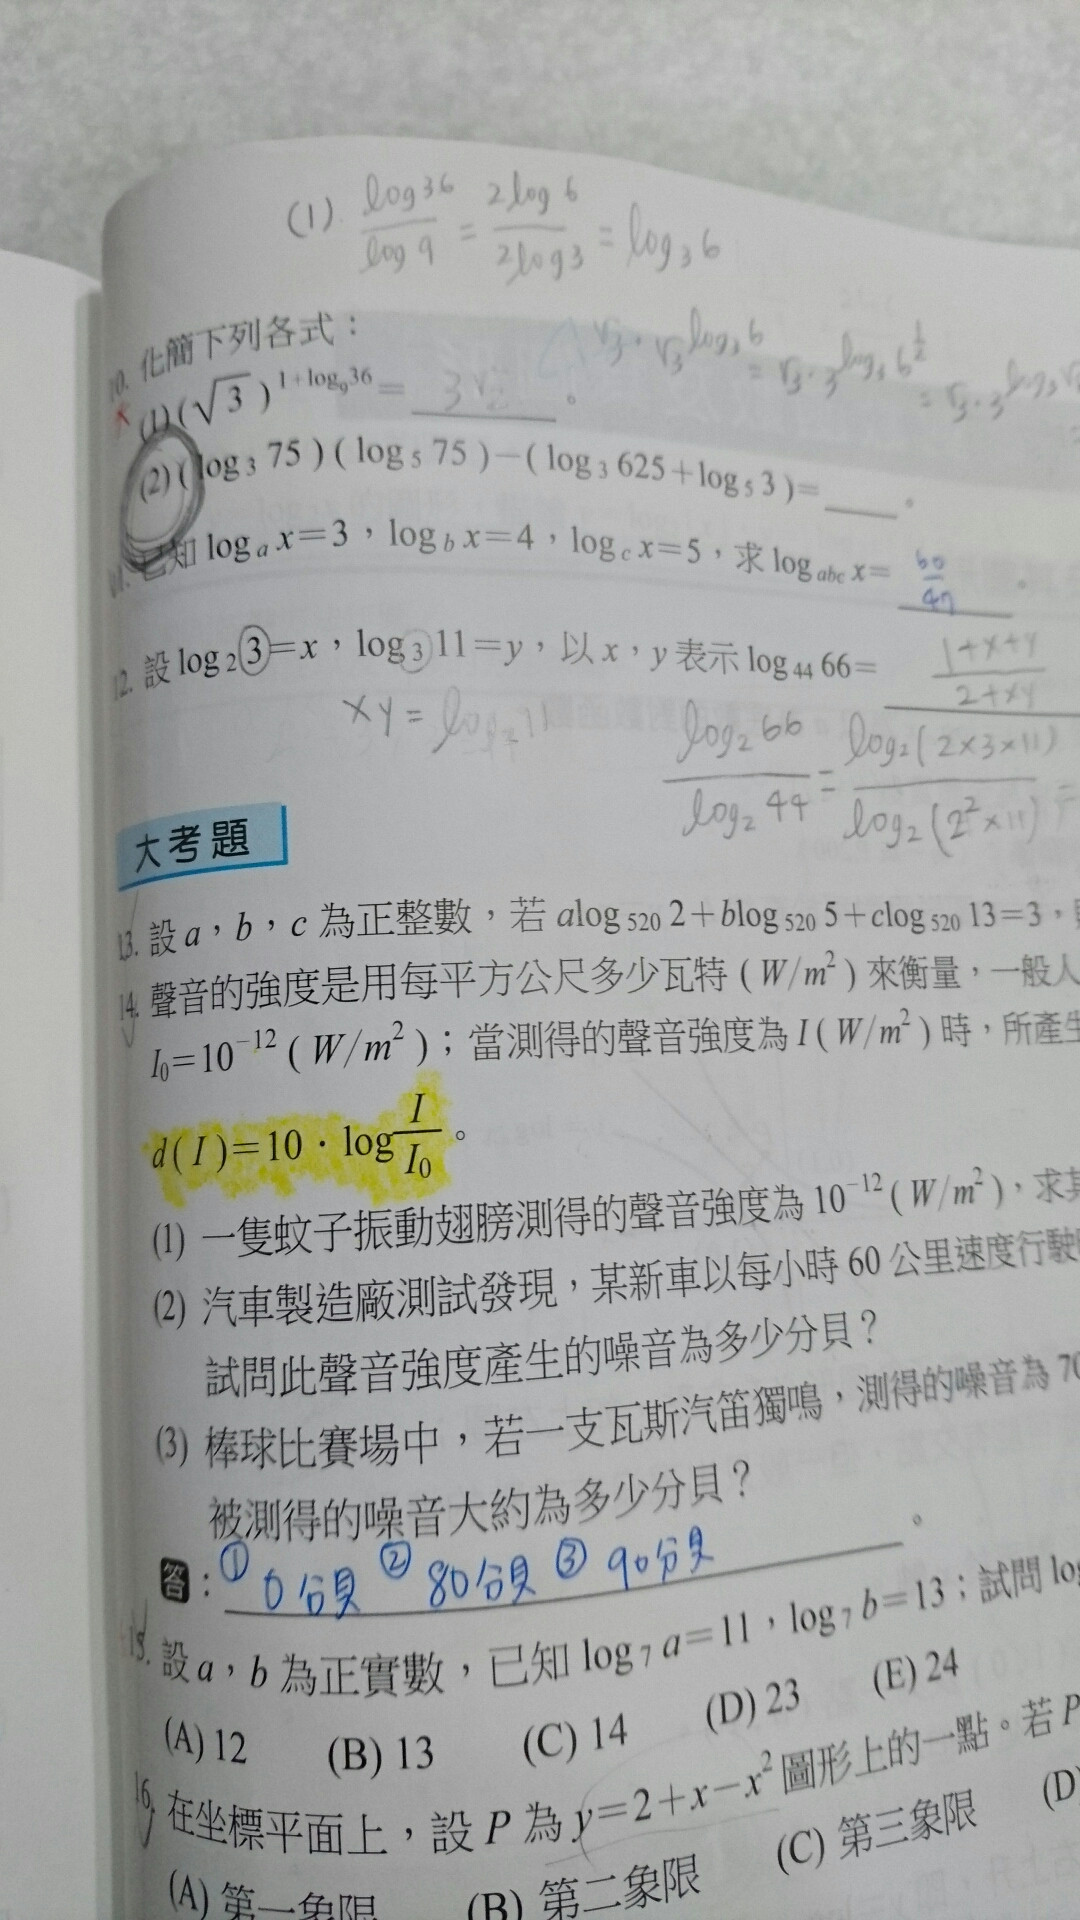 (1). log36/log9 = 2log6/2log3 = log₃6
√3·√3^log₃6 = √3·3^log₃6^½ = √3·3^log₃√
10. 化簡下列各式：
(1)(√3)^(1+log₉36)= 3√2 。
(2)(log₃75)(log₅75)－(log₃625+log₅3)=____。
11. 已知 logₐx=3，log_b x=4，log_c x=5，求 log_abc x= 60/47 。
12. 設 log₂3=x，log₃11=y，以 x，y 表示 log₄₄66= 1+x+y/2+xy
xy = log₂11
log₂66/log₂44 = log₂(2×3×11)/log₂(2²×11) =
大考題
13. 設 a，b，c 為正整數，若 alog₅₂₀2+blog₅₂₀5+clog₅₂₀13=3，
14. 聲音的強度是用每平方公尺多少瓦特 (W/m²) 來衡量，一般人
I₀=10⁻¹² (W/m²)；當測得的聲音強度為 I(W/m²) 時，所產生
d(I)=10·log I/I₀。
(1) 一隻蚊子振動翅膀測得的聲音強度為 10⁻¹²(W/m²)，求其
(2) 汽車製造廠測試發現，某新車以每小時 60 公里速度行駛
試問此聲音強度產生的噪音為多少分貝？
(3) 棒球比賽場中，若一支瓦斯汽笛獨鳴，測得的噪音為 70
被測得的噪音大約為多少分貝？
答：① 0分貝 ② 80分貝 ③ 90分貝 。
15. 設 a，b 為正實數，已知 log₇a=11，log₇b=13；試問 log
(A) 12 (B) 13 (C) 14 (D) 23 (E) 24
16. 在坐標平面上，設 P 為 y=2+x−x² 圖形上的一點。若 P
(A) 第一象限 (B) 第二象限 (C) 第三象限 (D)